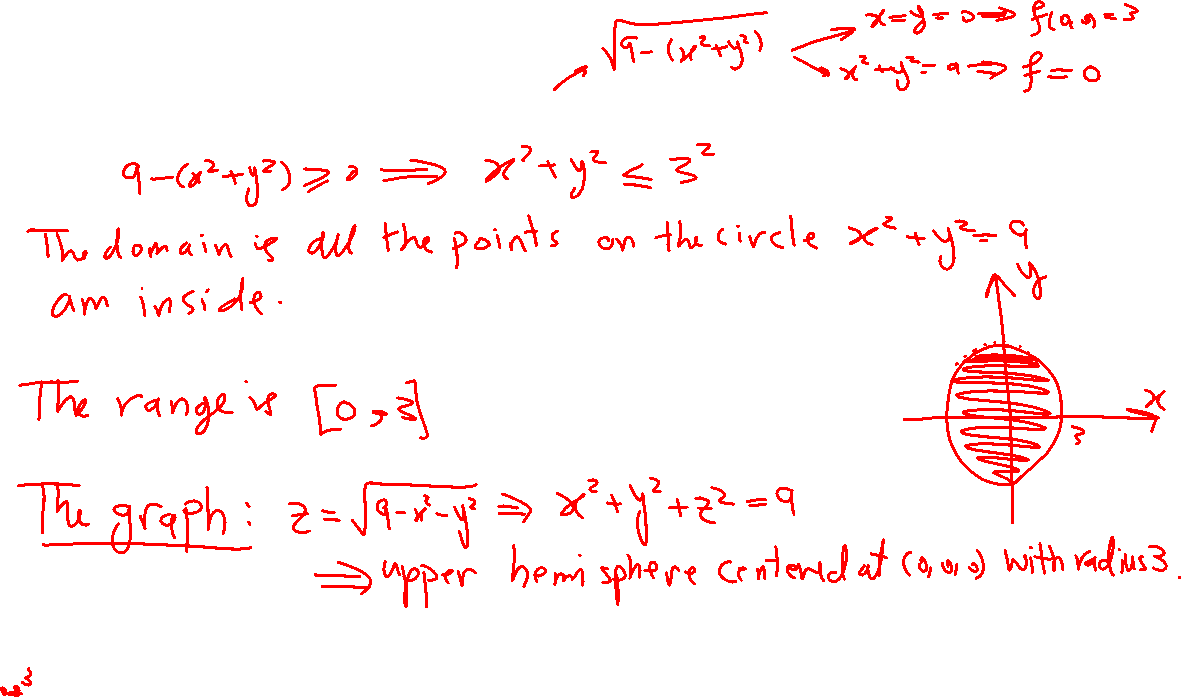 √9-(x²+y²)
x=y=0⇒ f(0,0)=3
x²+y²=9⇒ f=0
9-(x²+y²)≥0 ⇒ x²+y² ≤ 3²
The domain is all the points on the circle x²+y²=9
am inside.
y
The range is [0,3]
x
3
The graph: z=√9-x²-y² ⇒ x²+y²+z²=9
⇒ upper hemisphere centered at (0,0,0) with radius 3.